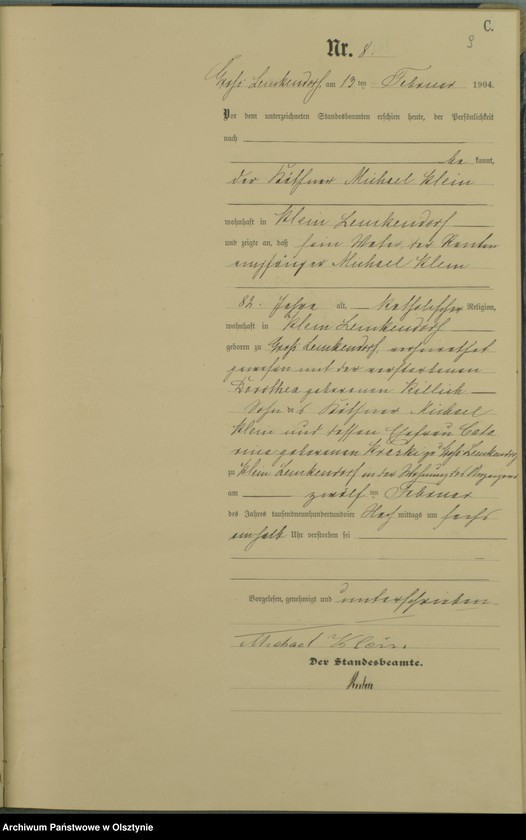 C.
9
Nr. 8.
Groß Lemkendorf, am 13 ten Februar 1904.
Vor dem unterzeichneten Standesbeamten erschien heute, der Persönlichkeit
nach
be kannt,
der Käthner Michael Klein
wohnhaft in Klein Lemkendorf
und zeigte an, daß sein Vater, der Renten
empfänger Michael Klein
82 Jahre alt, katholischer Religion,
wohnhaft in Klein Lemkendorf
geboren zu Groß Lemkendorf, verheirathet
gewesen mit der verstorbenen
Dorothea geborenen Killich
Sohn des Käthner Michael
Klein und dessen Ehefrau Catha
rina geborenen zu Groß Lemkendorf
zu Klein Lemkendorf in der Wohnung des Anzeigers
am zwölf ten Februar
des Jahres tausendneunhundertundvier Nach mittags um sechs
einhalb Uhr verstorben sei
Vorgelesen, genehmigt und unterschrieben
Michael Klein
Der Standesbeamte.
Archiwum Państwowe w Olsztynie